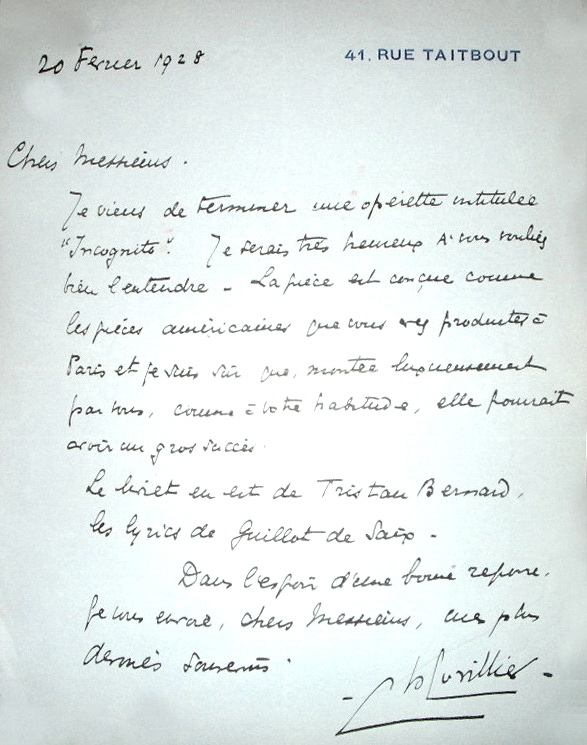 20 Fevrier 1928
41, RUE TAITBOUT
Chers Messieurs.
Je viens de terminer une opérette intitulée
"Incognito". Je serais très heureux si vous vouliez
bien l'entendre - La pièce est conçue comme
les pièces américaines que vous produites à
Paris et je suis sûr que, montée luxueusement
par vous, comme à votre habitude, elle pourrait
avoir un gros succès.
Le livret en est de Tristan Bernard,
les lyrics de Guillot de Saix -
Dans l'espoir d'une bonne reponse,
je vous envoie, chers Messieurs, mes plus
dévoués souvenirs.
Ch Cuvillier